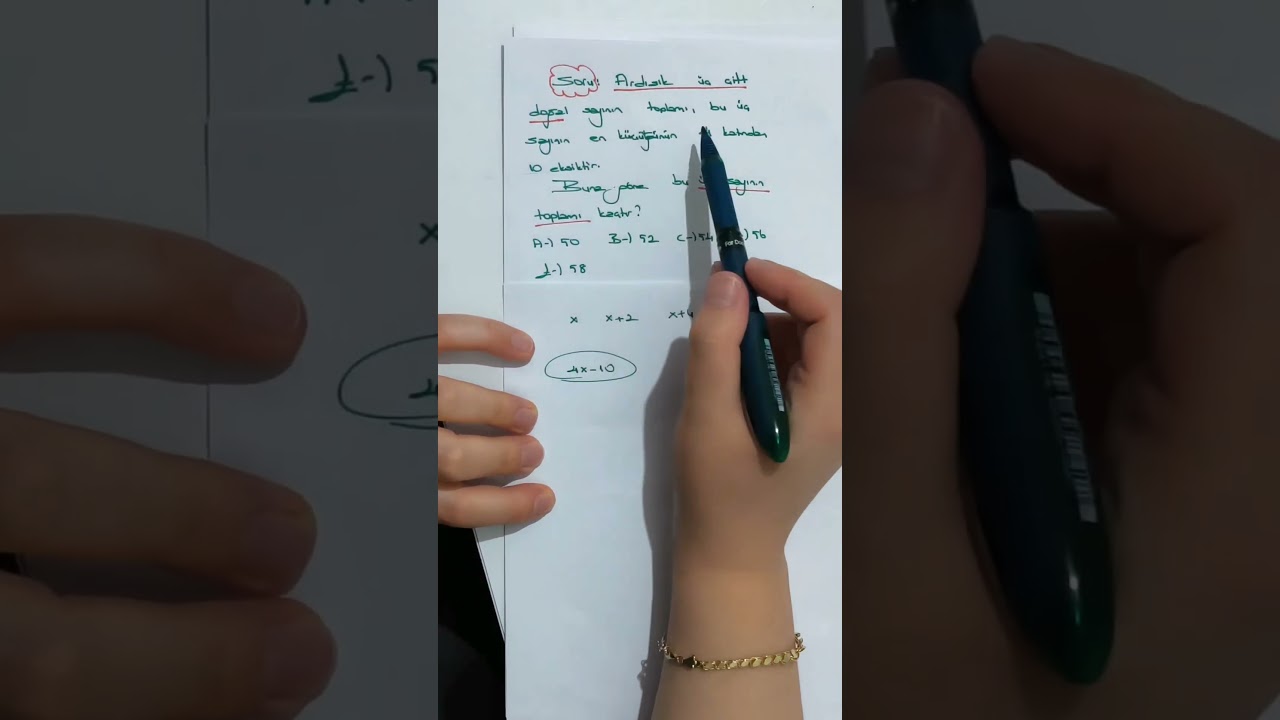 Soru: Ardışık üç çift
doğal sayının toplamı, bu üç
sayının en küçüğünün katından
10 eksiktir.
Buna göre bu sayının
toplamı kaçtır?
A-) 50 B-) 52 C-) 54 ) 56
E-) 58
x x+2 x+4
4x-10